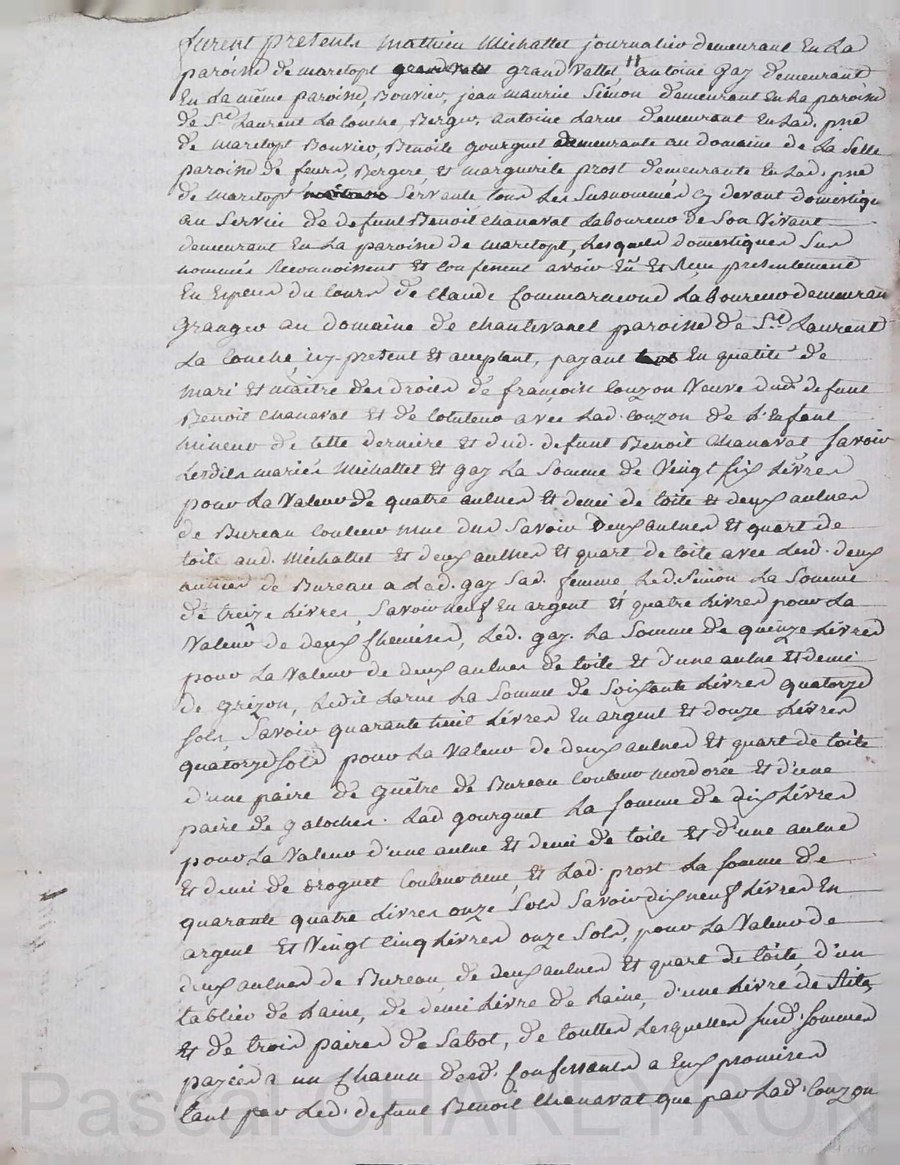 furent présents mathieu Michallet journalier demeurant En La
paroisse de maretopt grand Vallet, antoine Gay demeurant
En La même paroisse, Bouvier, jean maurice Simon demeurant En La paroisse
de St. Laurent La Conche, Berger, antoine Larue demeurant En Lad. psse
de maretopt Bouvier, Benoite gourguet demeurante au domaine de La Selle
paroisse de feurs, Bergere, et marguerite prost demeurante En Lad. psse
de maretopt Servante tous Les Susnommés cy devant domestiques
au Service de defunt Benoit Chanavat Laboureur de Son Vivant
demeurant En La paroisse de maretopt, Lesquels domestiques Sus
nommés Reconnoissent Et Confessent avoir Eu Et Reçu présentement
En Especes du Cours de Claude Laboureur demeurant
Granger au domaine de Chantevanel paroisse de St. Laurent
La Conche icy-present Et acceptant, payant En qualité de
mari Et maître des droits de françoise Couzon Veuve dud. defunt
Benoit Chanavat Et de Cotuteur avec Lad. Couzon de L'Enfant
mineur de Cette derniere Et dud. defunt Benoit Chanavat Savoir
Lesdits mariés Michallet Et Gay La Somme de Vingt six Livres
pour La Valeur de quatre aulnes Et demi de toile Et deux aulnes
de Bureau Couleur Savoir Deux aulnes Et quart de
toile aud. Michallet Et deux aulnes Et quart de toile avec Lesd. deux
aulnes de Bureau a Lad. gay Sad. femme Led. Simon La Somme
de treize Livres, Savoir neuf En argent Et quatre Livres pour La
Valeur de deux Chemises, Led. gay. La Somme de quinze Livres
pour La Valeur de deux aulnes de toile Et d'une aulne Et demi
de Grizon, Ledit Larue La Somme de Soixante Livres quatorze
Sols, Savoir quarante huit Livres En argent Et douze Livres
quatorze Sols pour La Valeur de deux aulnes Et quart de toile
d'une paire de guêtre de Bureau Couleur mordorée Et d'une
paire de galoches. Lad gourguet La Somme de dix Livres
pour La Valeur d'une aulne Et demi de toile Et d'une aulne
Et demi de droguet Couleur Et Lad. prost La Somme de
quarante quatre Livres onze Sols Savoir dix neuf Livres En
argent Et Vingt Cinq Livres onze Sols, pour La Valeur de
deux aulnes de Bureau, de deux aulnes Et quart de toile, d'un
tablier de Laine, de demi Livre de Laine, d'une Livre de
Et de trois paires de Sabot, de touttes Lesquelles susd. Sommes
payées a un Chacun desd. Confessants a Eux promises
tant par Led. defunt Benoit Chanavat que par Lad. Couzon
Pascal CHAREYRON